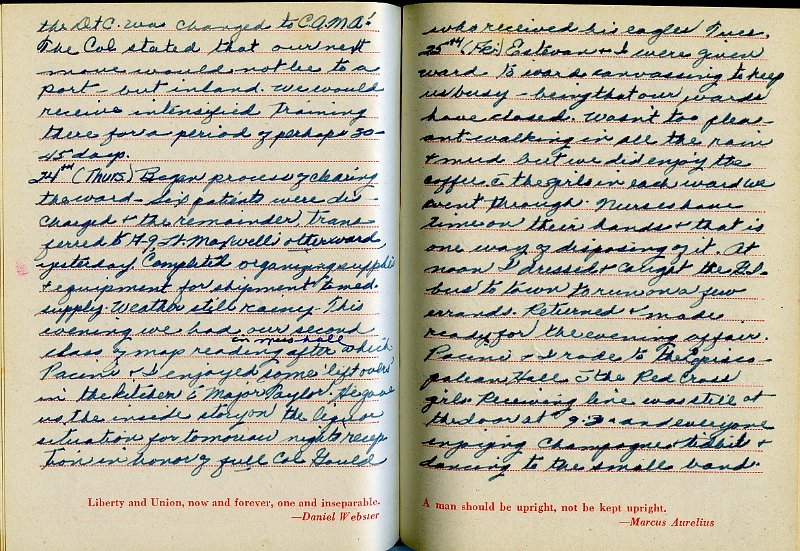 the D+C. was changed to C.A.M.A.!
The Col stated that our next
move would not be to a
port - but inland. We would
receive intensified training
there for a period of perhaps 30-
45 days.
24th (Thurs) Began process of clearing
the ward - six patients were dis-
charged + the remainder trans-
ferred to Maxwell's other ward,
yesterday. Completed organizing supplies
+ equipment for shipment to med.
supply. Weather still rainy. This
evening we had our second
in mess hall
class of map reading after which
Pacini + I enjoyed some "left overs"
in the kitchen c Major Taylor. He gave
us the inside story on the liquor
situation for tomorrow night's recep-
tion in honor of full Col Gould
Liberty and Union, now and forever, one and inseparable.
—Daniel Webster
who received his eagles Tues.
25th (Fri) Estevan + I were given
ward to ward canvassing to keep
us busy - being that our wards
have closed. Wasn't too pleas-
ant walking in all the rain
+ mud but we did enjoy the
coffee c the girls in each ward we
went through. Nurses have
time on their hands + that is
one way of disposing of it. At
noon I dressed + caught the
bus to town to run on a few
errands. Returned + made
ready for the evening affair.
Pacini + I rode to the Episco-
palian Hall c the Red Cross
girls. Receiving line was still at
the door at 9:30 and everyone
enjoying champagne + tidbits +
dancing to the small band.
A man should be upright, not be kept upright.
—Marcus Aurelius